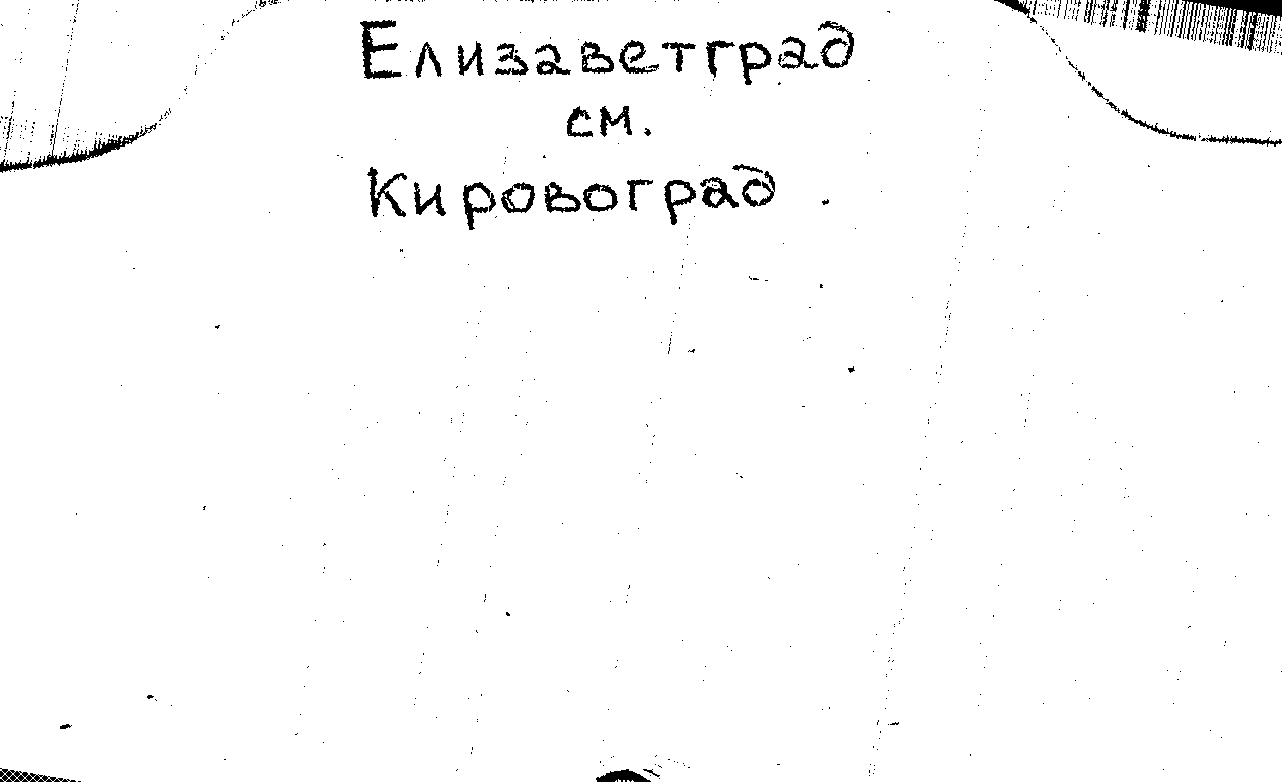 Елизаветград
см.
Кировоград